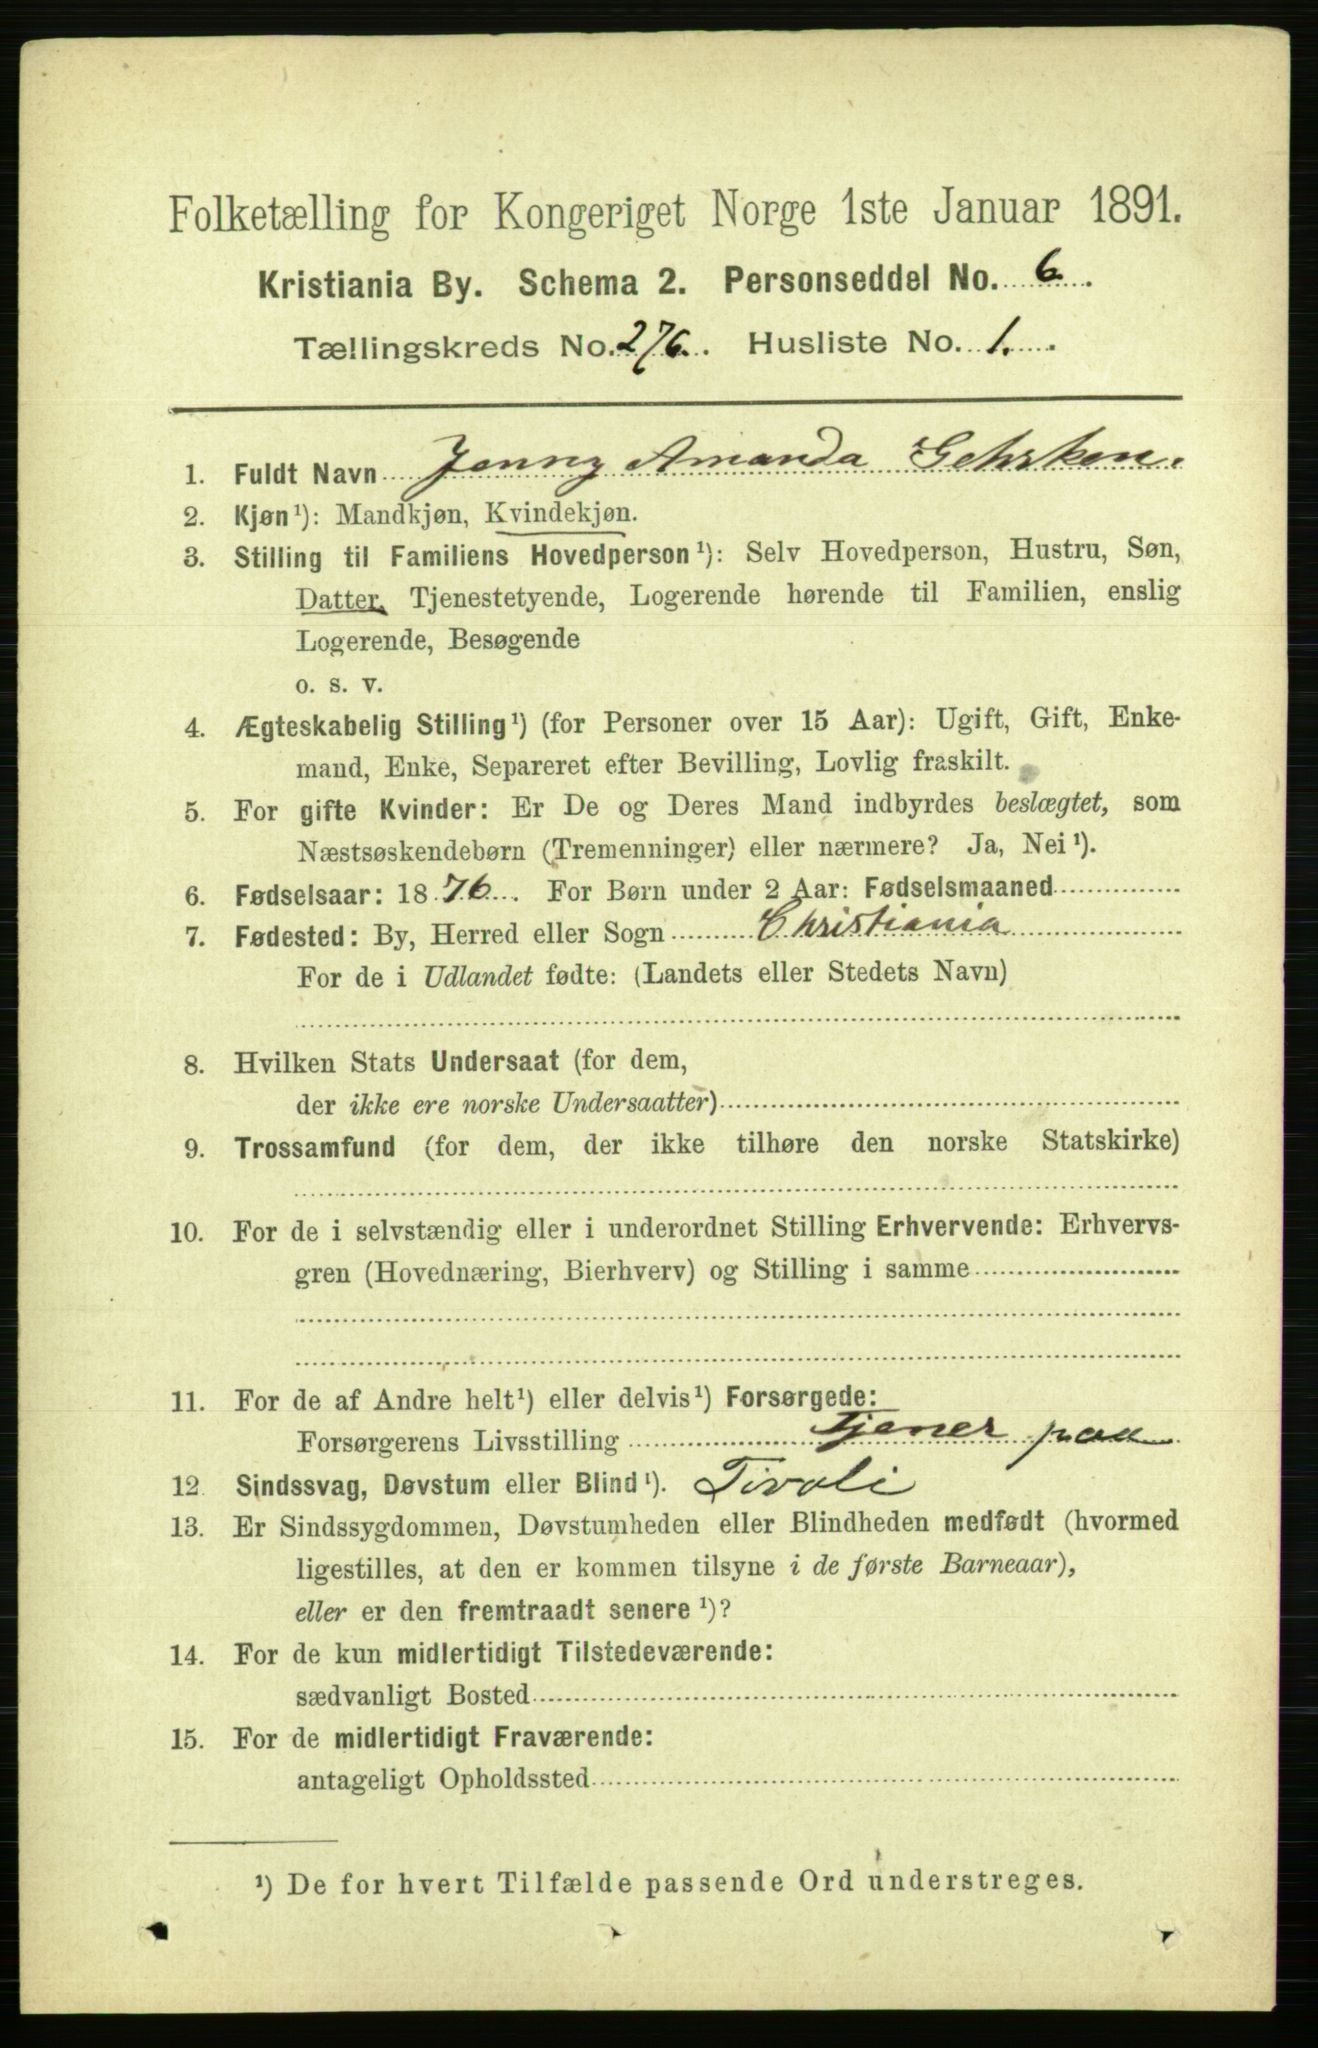 Folketælling for Kongeriget Norge 1ste Januar 1891.
Kristiania By. Schema 2. Personseddel No. 6.
Tællingskreds No. 276. Husliste No. 1.
1. Fuldt Navn Jenny Amanda Gehrken.
2. Kjøn¹): Mandkjøn, Kvindekjøn.
3. Stilling til Familiens Hovedperson¹): Selv Hovedperson, Hustru, Søn,
Datter, Tjenestetyende, Logerende hørende til Familien, enslig
Logerende, Besøgende
o. s. v.
4. Ægteskabelig Stilling¹) (for Personer over 15 Aar): Ugift, Gift, Enke-
mand, Enke, Separeret efter Bevilling, Lovlig fraskilt.
5. For gifte Kvinder: Er De og Deres Mand indbyrdes beslægtet, som
Næstsøskendebørn (Tremenninger) eller nærmere? Ja, Nei¹).
6. Fødselsaar: 1876. For Børn under 2 Aar: Fødselsmaaned
7. Fødested: By, Herred eller Sogn Christiania
For de i Udlandet fødte: (Landets eller Stedets Navn)
8. Hvilken Stats Undersaat (for dem,
der ikke ere norske Undersaatter)
9. Trossamfund (for dem, der ikke tilhøre den norske Statskirke)
10. For de i selvstændig eller i underordnet Stilling Erhvervende: Erhvervs-
gren (Hovednæring, Bierhverv) og Stilling i samme
11. For de af Andre helt¹) eller delvis¹) Forsørgede:
Forsørgerens Livsstilling Tjener paa
12 Sindssvag, Døvstum eller Blind¹). Tivoli
13. Er Sindssygdommen, Døvstumheden eller Blindheden medfødt (hvormed
ligestilles, at den er kommen tilsyne i de første Barneaar),
eller er den fremtraadt senere¹)?
14. For de kun midlertidigt Tilstedeværende:
sædvanligt Bosted
15. For de midlertidigt Fraværende:
antageligt Opholdssted
¹) De for hvert Tilfælde passende Ord understreges.